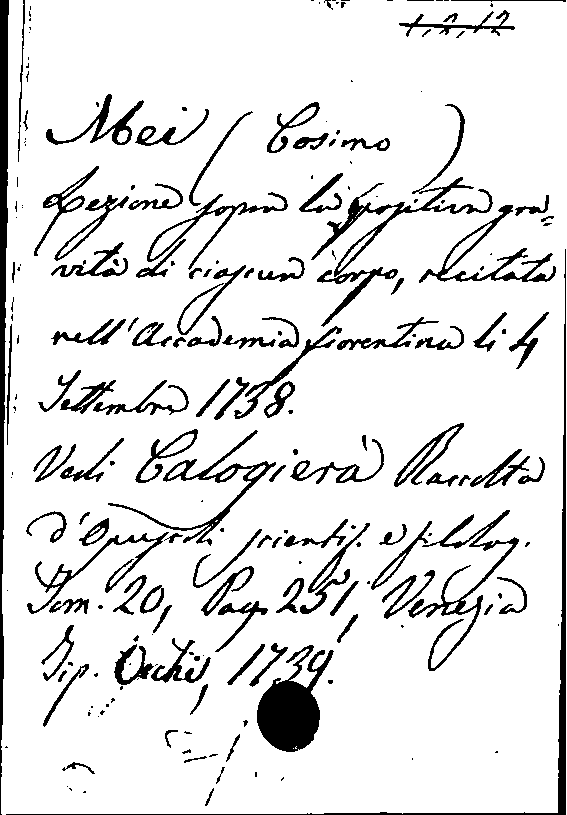 1, 2, 12
Mei (Cosimo)
Lezione sopra la positiva gra=
vità di ciascun corpo, recitata
nell'Accademia fiorentina li 4
Settembre 1738.
Vedi Calogierà Raccolta
d'Opuscoli scientif. e filolog.
Tom. 20, Pag. 251, Venezia
Tip. Occhi, 1739.